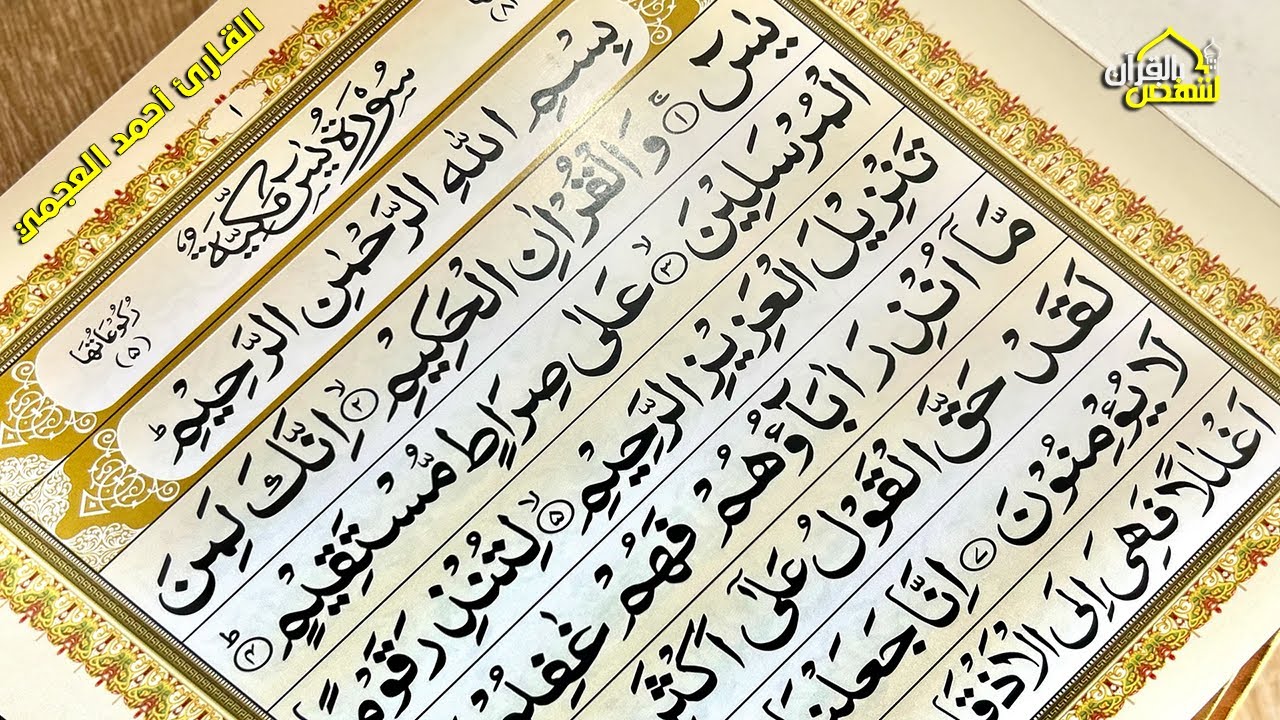 القارئ أحمد العجمي
لنشفى بالقرآن
سُوْرَةُ يٰسٓ مَكِّيَّةٌ
رُكُوْعَاتُهَا (۵)
بِسْمِ اللّٰهِ الرَّحْمٰنِ الرَّحِيْمِ ؕ
يٰسٓ ۚ‏﴿۱﴾ وَالْقُرْاٰنِ الْحَكِيْمِ ۙ‏﴿۲﴾ اِنَّكَ لَمِنَ
الْمُرْسَلِيْنَ ۙ‏﴿۳﴾ عَلٰى صِرَاطٍ مُّسْتَقِيْمٍ ؕ‏﴿۴﴾
تَنْزِيْلَ الْعَزِيْزِ الرَّحِيْمِ ۙ‏﴿۵﴾ لِتُنْذِرَ قَوْمًا
مَّاۤ اُنْذِرَ اٰبَآؤُهُمْ فَهُمْ غٰفِلُ
لَقَدْ حَقَّ الْقَوْلُ عَلٰٓى اَكْثَرِ
لَا يُؤْمِنُوْنَ ﴿۷﴾ اِنَّا جَعَلْنَا
اَغْلٰلًا فَهِىَ اِلَى الْاَذْقَ